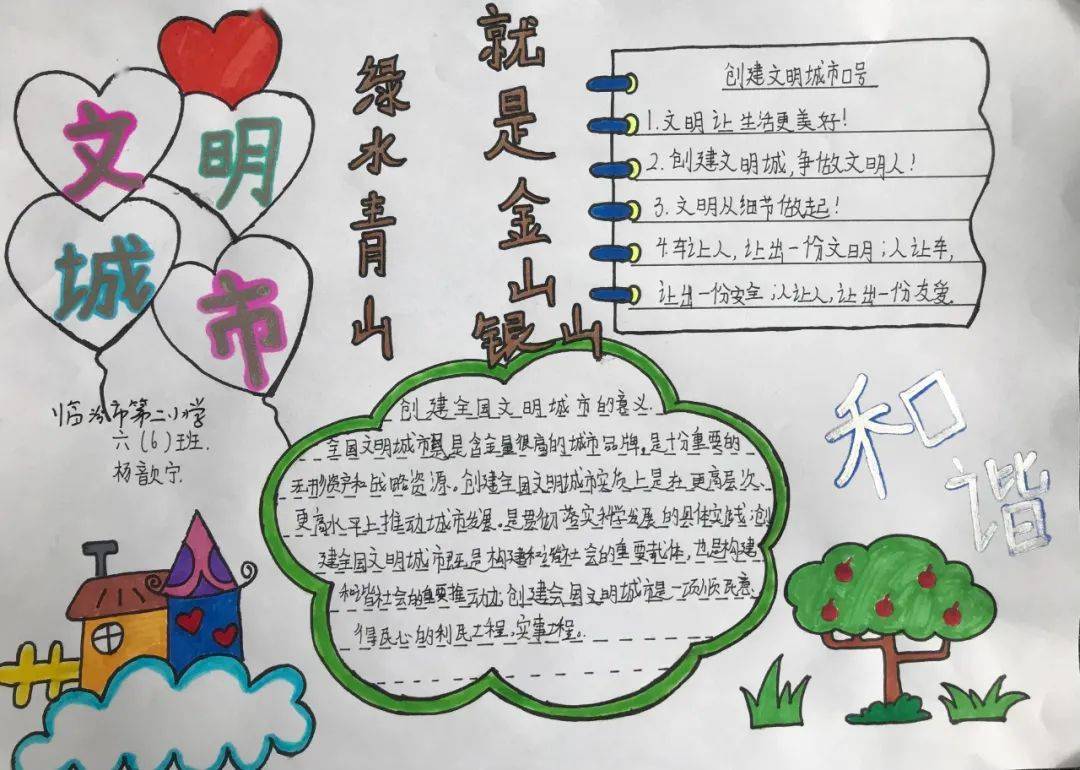 文明
城市
绿水青山
就是金山
银山
创建文明城市口号
1.文明让生活更美好!
2.创建文明城,争做文明人!
3.文明从细节做起!
4.车让人,让出一份文明;人让车,
让出一份安全;人让人,让出一份友爱.
临汾市第二小学
六(6)班.
杨歆宁.
创建全国文明城市的意义.
全国文明城市是含金量很高的城市品牌,是十分重要的
无形资产和战略资源。创建全国文明城市实质上是在更高层次、
更高水平上推动城市发展。是贯彻落实科学发展的具体实践;创
建全国文明城市既是构建和谐社会的重要载体,也是构建
和谐社会的重要推动力;创建全国文明城市是一项顺民意、
得民心的利民工程,实事工程。
和
谐